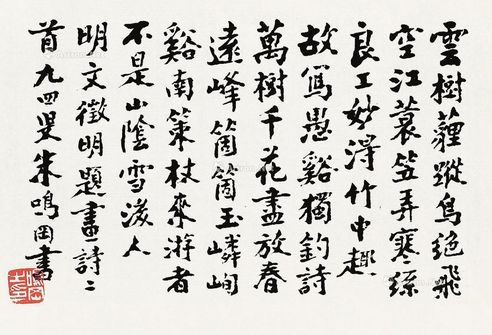 雲樹蘿蹤鳥絕飛
空江蓑笠弄寒絲
良工妙得竹中趣
故寫愚谿獨釣詩
萬樹千花盡放春
遠峰箇箇玉嶙峋
谿南策杖來游者
不是山陰雪後人
明文徵明題畫詩二
首九四叟朱鳴岡書